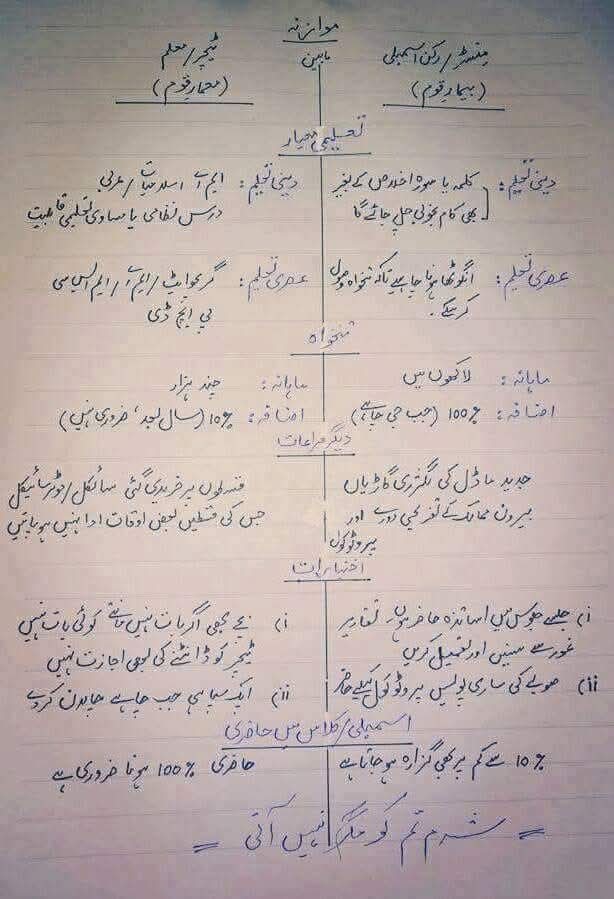 موازنہ
منسٹر/رکن اسمبلی مابین ٹیچر/معلم
(بیمار قوم) (معمار قوم)
تعلیمی معیار
دینی تعلیم: کلمہ یا سورۃ اخلاص کے بغیر دینی تعلیم: ایم اے اسلامیات/عربی
بھی کام بخوبی چل جائے گا درس نظامی یا مساوی تعلیمی قابلیت
عصری تعلیم: انگوٹھا ہونا چاہیے تاکہ تنخواہ وصول عصری تعلیم: گریجوایٹ/ایم اے/ایم ایس سی
کر سکے۔ پی ایچ ڈی
تنخواہ
ماہانہ: لاکھوں میں ماہانہ: چند ہزار
اضافہ: 100% (جب جی چاہے) اضافہ: 10% (سال بعد، ضروری نہیں)
دیگر مراعات
جدید ماڈل کی لگژری گاڑیاں قسطوں پر خریدی گئی سائیکل/موٹر سائیکل
بیرون ممالک کے تفریحی دورے اور جس کی قسطیں بعض اوقات ادا نہیں ہو پاتیں
پروٹوکول
اختیارات
i) جلسے جلوس میں اساتذہ حاضر ہوں، تقاریر i) بچے بھی اگر بات نہیں مانتے کوئی بات نہیں
غور سے سنیں اور تعمیل کریں ٹیچر کو ڈانٹنے کی بھی اجازت نہیں
ii) صوبے کی ساری پولیس پروٹوکول کیلئے حاضر ii) ایک سپاہی جب چاہے چالان کر دے
اسمبلی/کلاس میں حاضری
10% سے کم پر بھی گزارہ ہو جاتا ہے حاضری 100% ہونا ضروری ہے
= شرم تم کو مگر نہیں آتی =